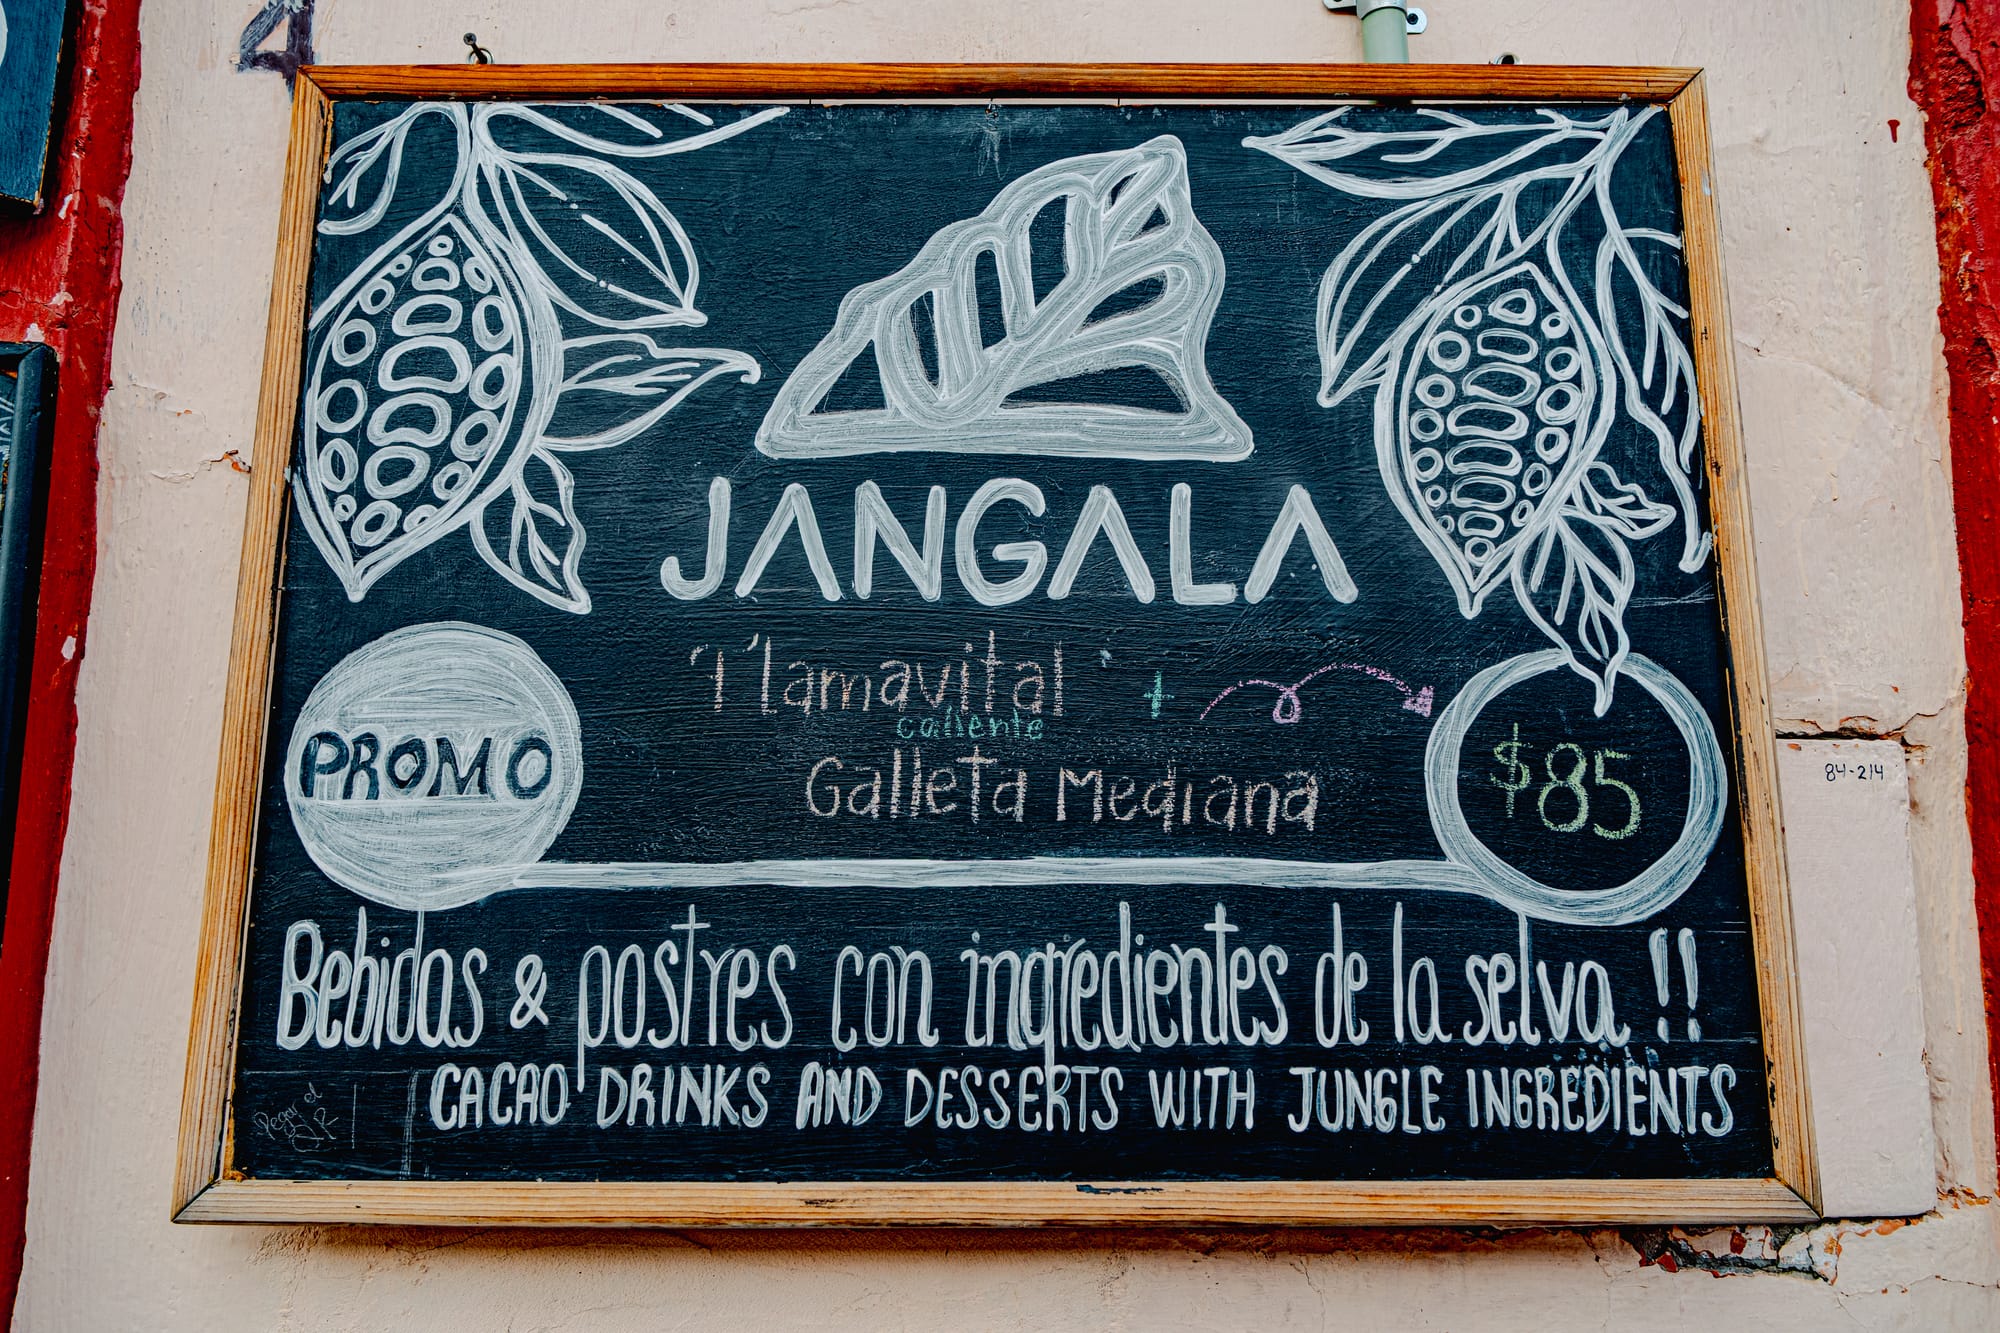 4
JANGALA
1 Llamavital +
caliente
Galleta Mediana
PROMO
$85
84-214
Bebidas & postres con ingredientes de la selva !!
CACAO DRINKS AND DESSERTS WITH JUNGLE INGREDIENTS
Pegar el
QR